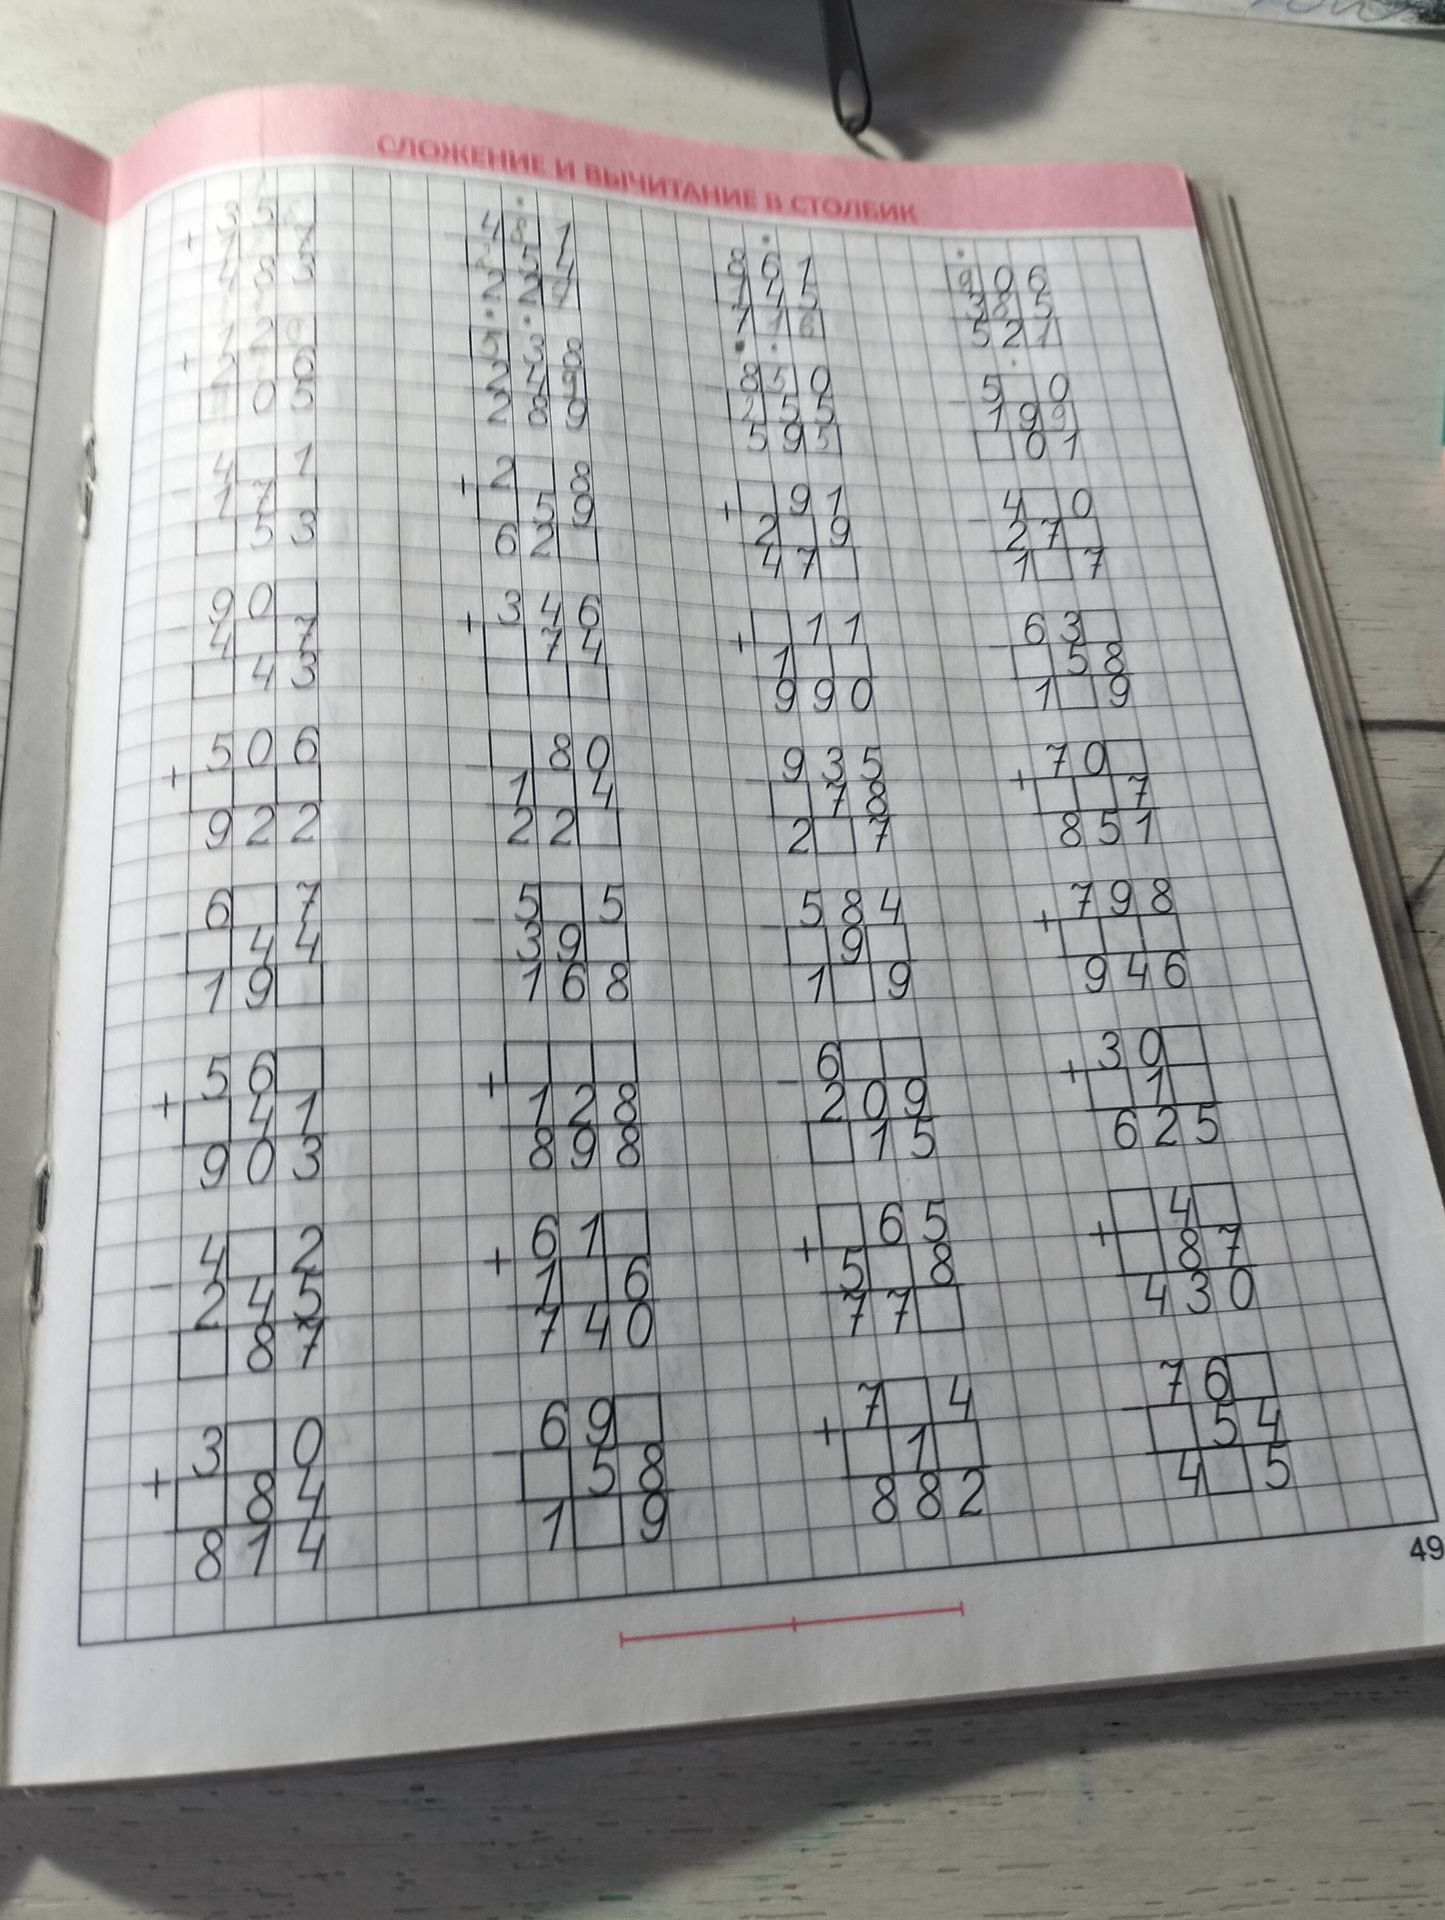 СЛОЖЕНИЕ И ВЫЧИТАНИЕ В СТОЛБИК
+ 483
- 481
- 861 716
- 906 385 521
+ 05
- 538 249 289
- 850 255 595
- 5□0 199 □01
- 4□1 17□ □53
+ 2□8 □59 62□
+ □91 2□9 47□
- 4□0 27□ 1□7
- 90□ 4□7 □43
+ 346 □74 □□□
+ □11 1□□ 990
- 63□ □58 1□9
+ 506 □□□ 922
- □80 1□4 22□
- 935 □78 2□7
+ 70□ □□7 851
- 6□7 □44 19□
- 5□5 39□ 168
- 584 □9□ 1□9
+ 798 □□□ 946
+ 56□ □41 903
+ □□□ 128 898
- 6□□ 209 □15
+ 30□ □1□ 625
- 4□2 245 □87
+ 61□ 1□6 740
+ □65 5□8 77□
+ □4□ □87 430
+ 3□0 □84 814
- 69□ □58 1□9
+ 7□4 □1□ 882
- 76□ □54 4□5
49